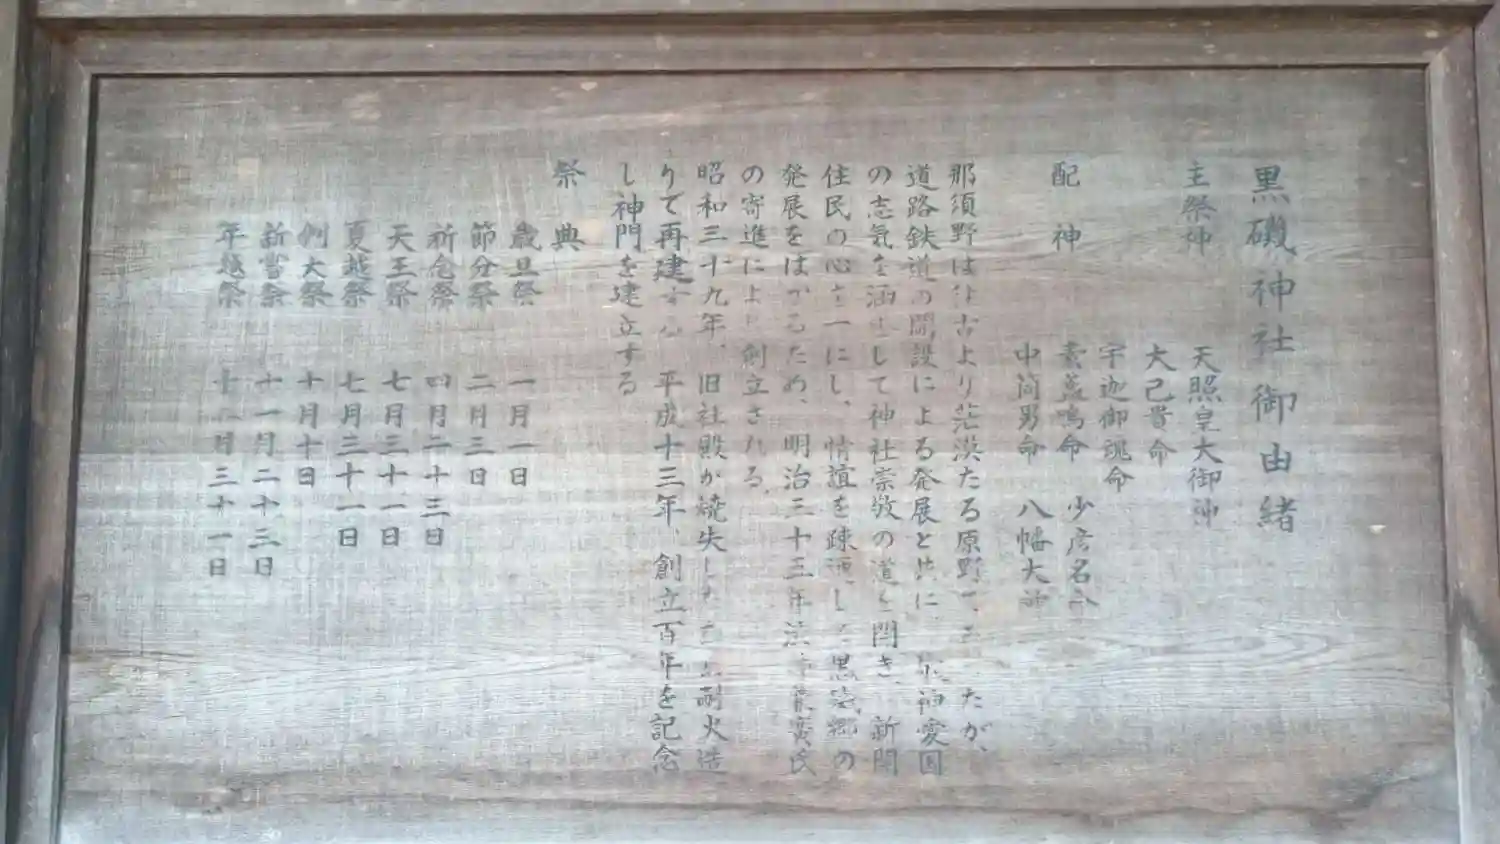 黒磯神社御由緒
主祭神
天照皇大御神
大己貴命
配神
宇迦御魂命
素盞鳴命 少彦名命
中筒男命 八幡大神
那須野は往古より茫漠たる原野で たが、
道路鉄道の開設による発展と共に、敬神愛国
の志気を涵 して神社崇敬の道を開き、新開
住民の心を一にし、情誼を疎通し 黒磯郷の
発展をはかるため、明治三十三年 氏
の寄進により創立される。
昭和三十九年、旧社殿が焼失した 耐火造
りて再建する 平成十三年、創立百年を記念
し神門を建立する
祭典
歳旦祭 一月一日
節分祭 二月三日
祈念祭 四月二十三日
天王祭 七月三十一日
夏越祭 七月三十一日
例大祭 十月十日
新嘗祭 十一月二十三日
年越祭 十二月三十一日